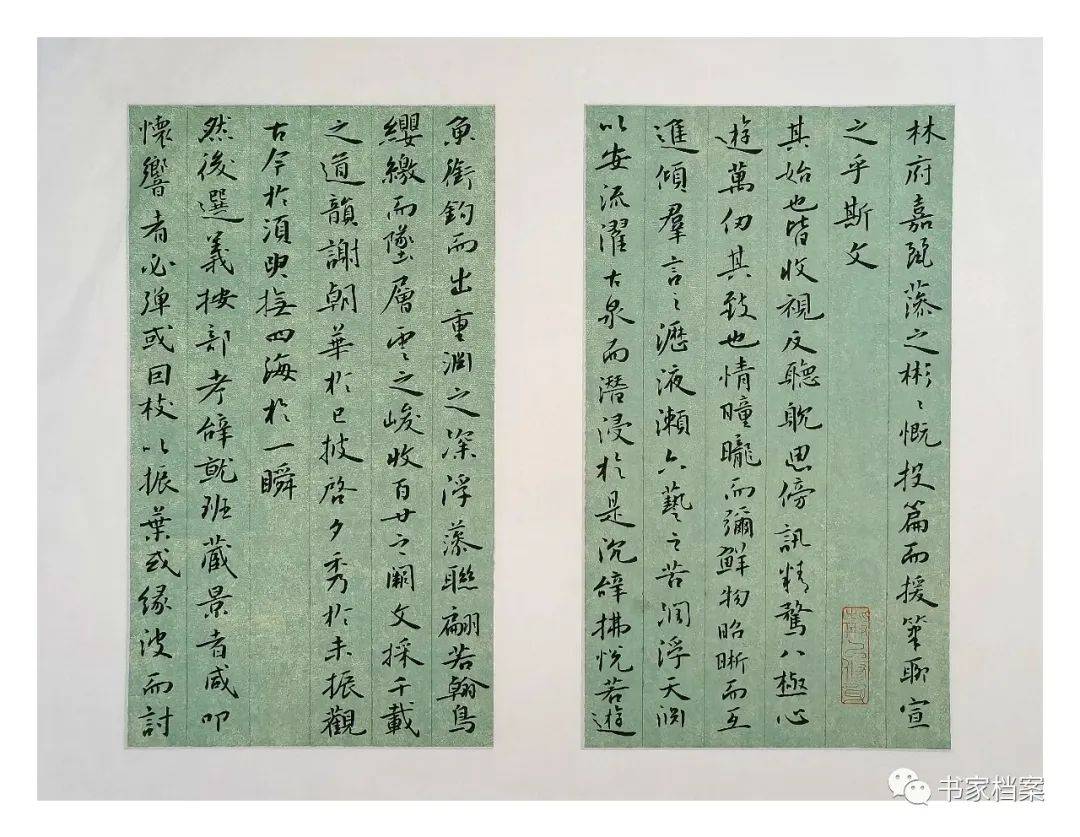 林府嘉麗藻之彬〻慨投篇而援筆聊宣
之乎斯文
其始也皆收視反聽耽思傍訊精騖八極心
遊萬仞其致也情曈曨而彌鮮物昭晰而互
進傾羣言〻瀝液漱六藝之芳潤浮天淵
以安流濯下泉而潛浸於是沉辭怫悅若遊
魚銜鈎而出重淵之深浮藻聯翩若翰鳥
纓繳而墜層雲之峻收百世之闕文採千載
之遺韻謝朝華於已披啓夕秀於未振觀
古今於須臾撫四海於一瞬
然後選義按部考辭就班藏景者咸叩
懷響者必彈或因枝以振葉或緣波而討
书家档案